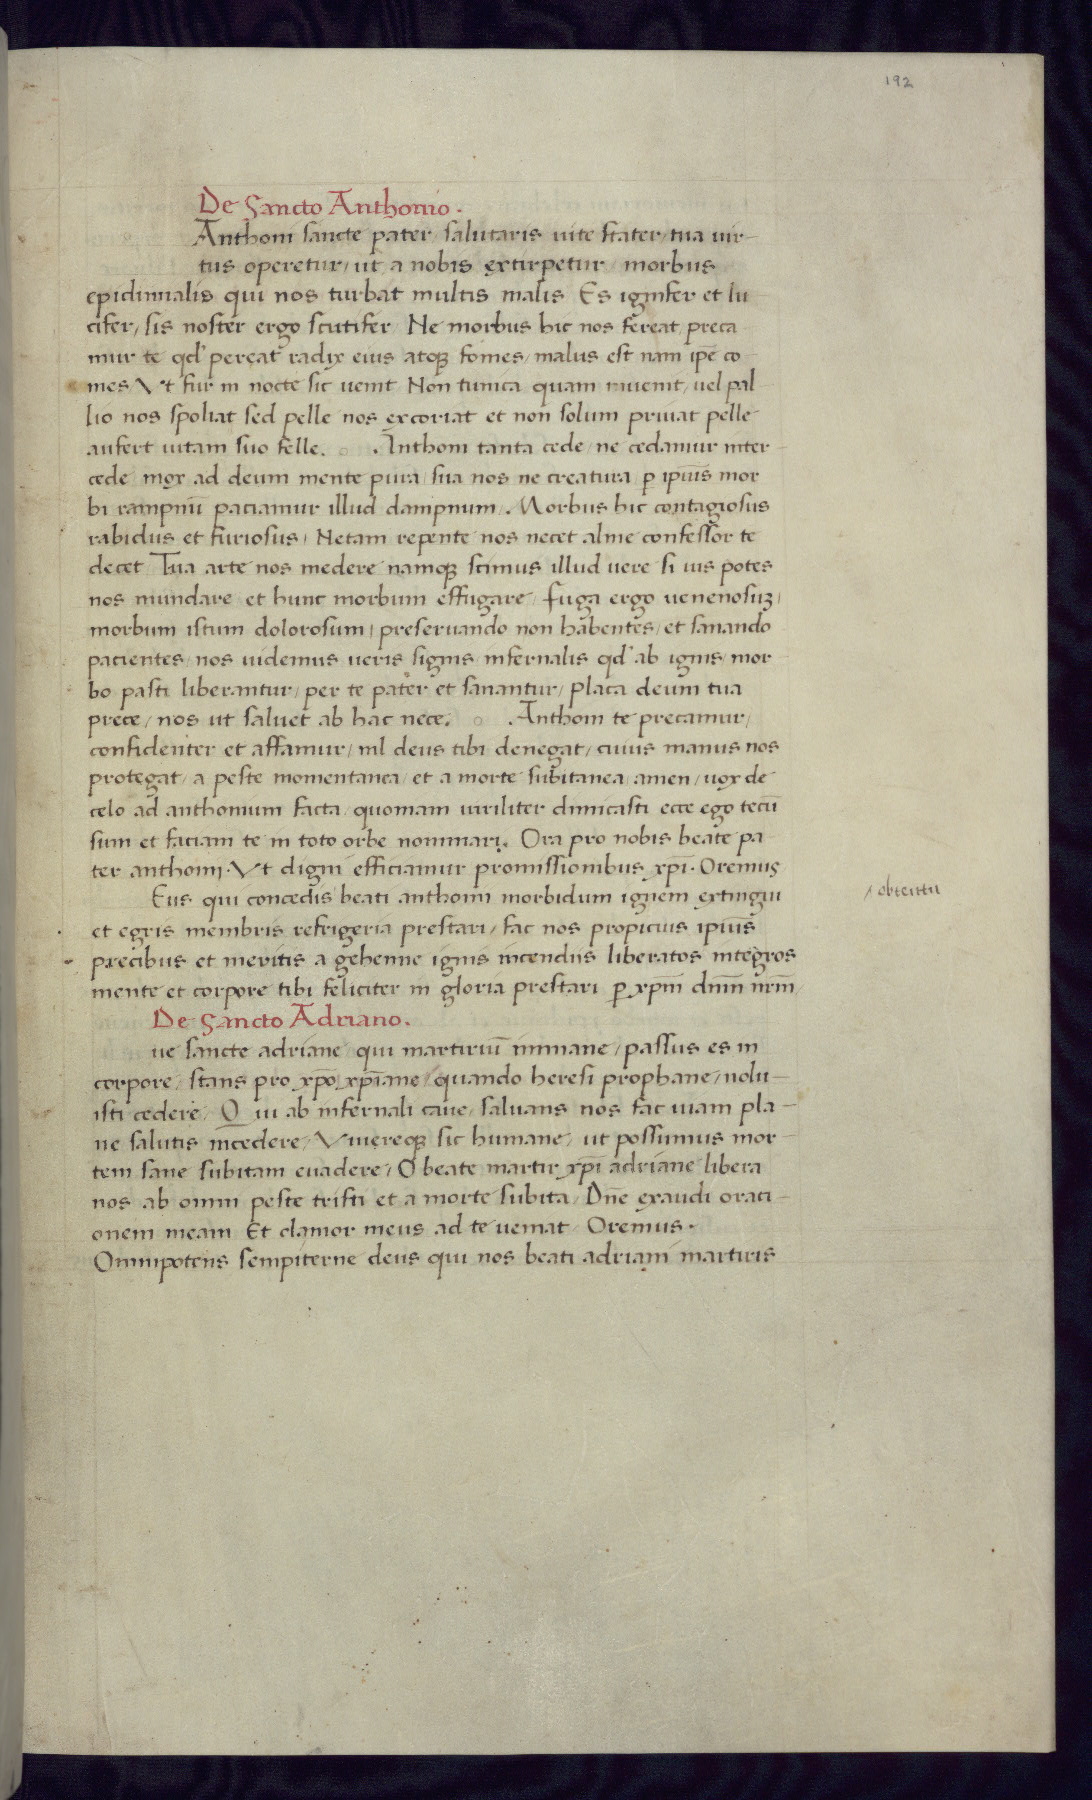 192
De Sancto Anthonio.
Anthoni sancte pater / salutaris uite stater / tua uir-
tus operetur / ut a nobis extirpetur / morbus
epidimialis qui nos turbat multis malis Es ignifer et lu
cifer / sis noster ergo scutifer / Ne morbus hic nos fereat preca
mur te qd' pereat radix eius atqȝ fomes / malus est nam ip̄e co-
mes Vt fur in nocte sic uenit Non tunica quam inuenit / uel pal-
lio nos spoliat sed pelle nos excoriat et non solum priuat pelle
aufert uitam suo felle. Anthoni tanta cede / ne cedamur inter-
cede mox ad deum mente pura / sua nos ne creatura p ipius mor
bi rampnū paciamur illud dampnum. Morbus hic contagiosus
rabidus et furiosus / Netam repente nos necet alme confessor te
decet Tua arte nos medere namqȝ scimus illud uere si uis potes
nos mundare et hunc morbum effugare / fuga ergo uenenosuȝ /
morbum istum dolorosum / preseruando non habentes / et sanando
pacientes / nos uidemus ueris signis / infernalis qd' ab ignis / mor-
bo pasti liberantur / per te pater et sanantur / placa deum tua
prece / nos ut saluet ab hac nece. Anthoni te precamur /
confidenter et affamur / nil deus tibi denegat / cuius manus nos
protegat / a peste momentanea / et a morte subitanea / amen / uox de
celo ad anthonium facta / quoniam uiriliter dimicasti ecce ego tecū
sum et faciam te in toto orbe nominari. Ora pro nobis beate pa
ter anthoni. Vt digni efficiamur promissionibus xp̄i. Oremus
Eus qui concedis beati anthonii morbidum ignem extingui
/ obtentu
et egris membris refrigeria prestari / fac nos propicius ipius
precibus et meritis a gehenne ignis incendiis liberatos integros
mente et corpore tibi feliciter in gloria prestari p xp̄m dn̄m nr̄m /
De Sancto Adriano.
ue sancte adriane / qui martiriū inmane / passus es in
corpore / stans pro xp̄o xp̄iane / quando heresi prophane / nolu-
isti cedere / Qui ab infernali caue / saluans nos fac uiam pla-
ne salutis incedere / Viuereqȝ sic humane / ut possumus mor-
tem sane subitam euadere / O beate martir xp̄i adriane libera
nos ab omni peste tristi et a morte subita / Dn̄e exaudi orati-
onem meam Et clamor meus ad te ueniat / Oremus.
Omnipotens sempiterne deus qui nos beati adriani martiris